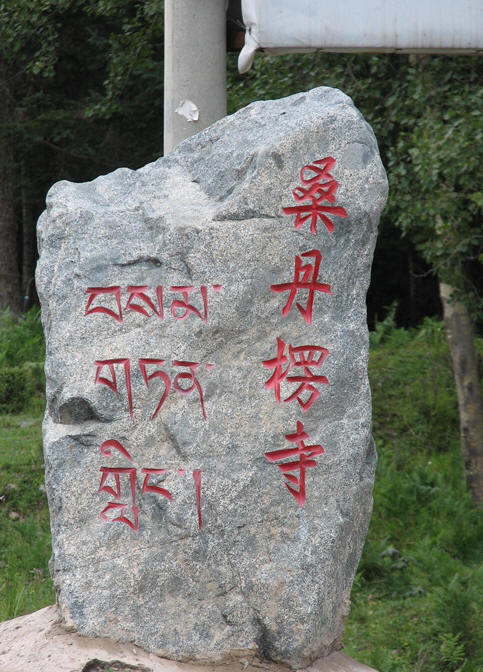 བསམ་
གཏན་
གླིང་།
桑丹楞寺